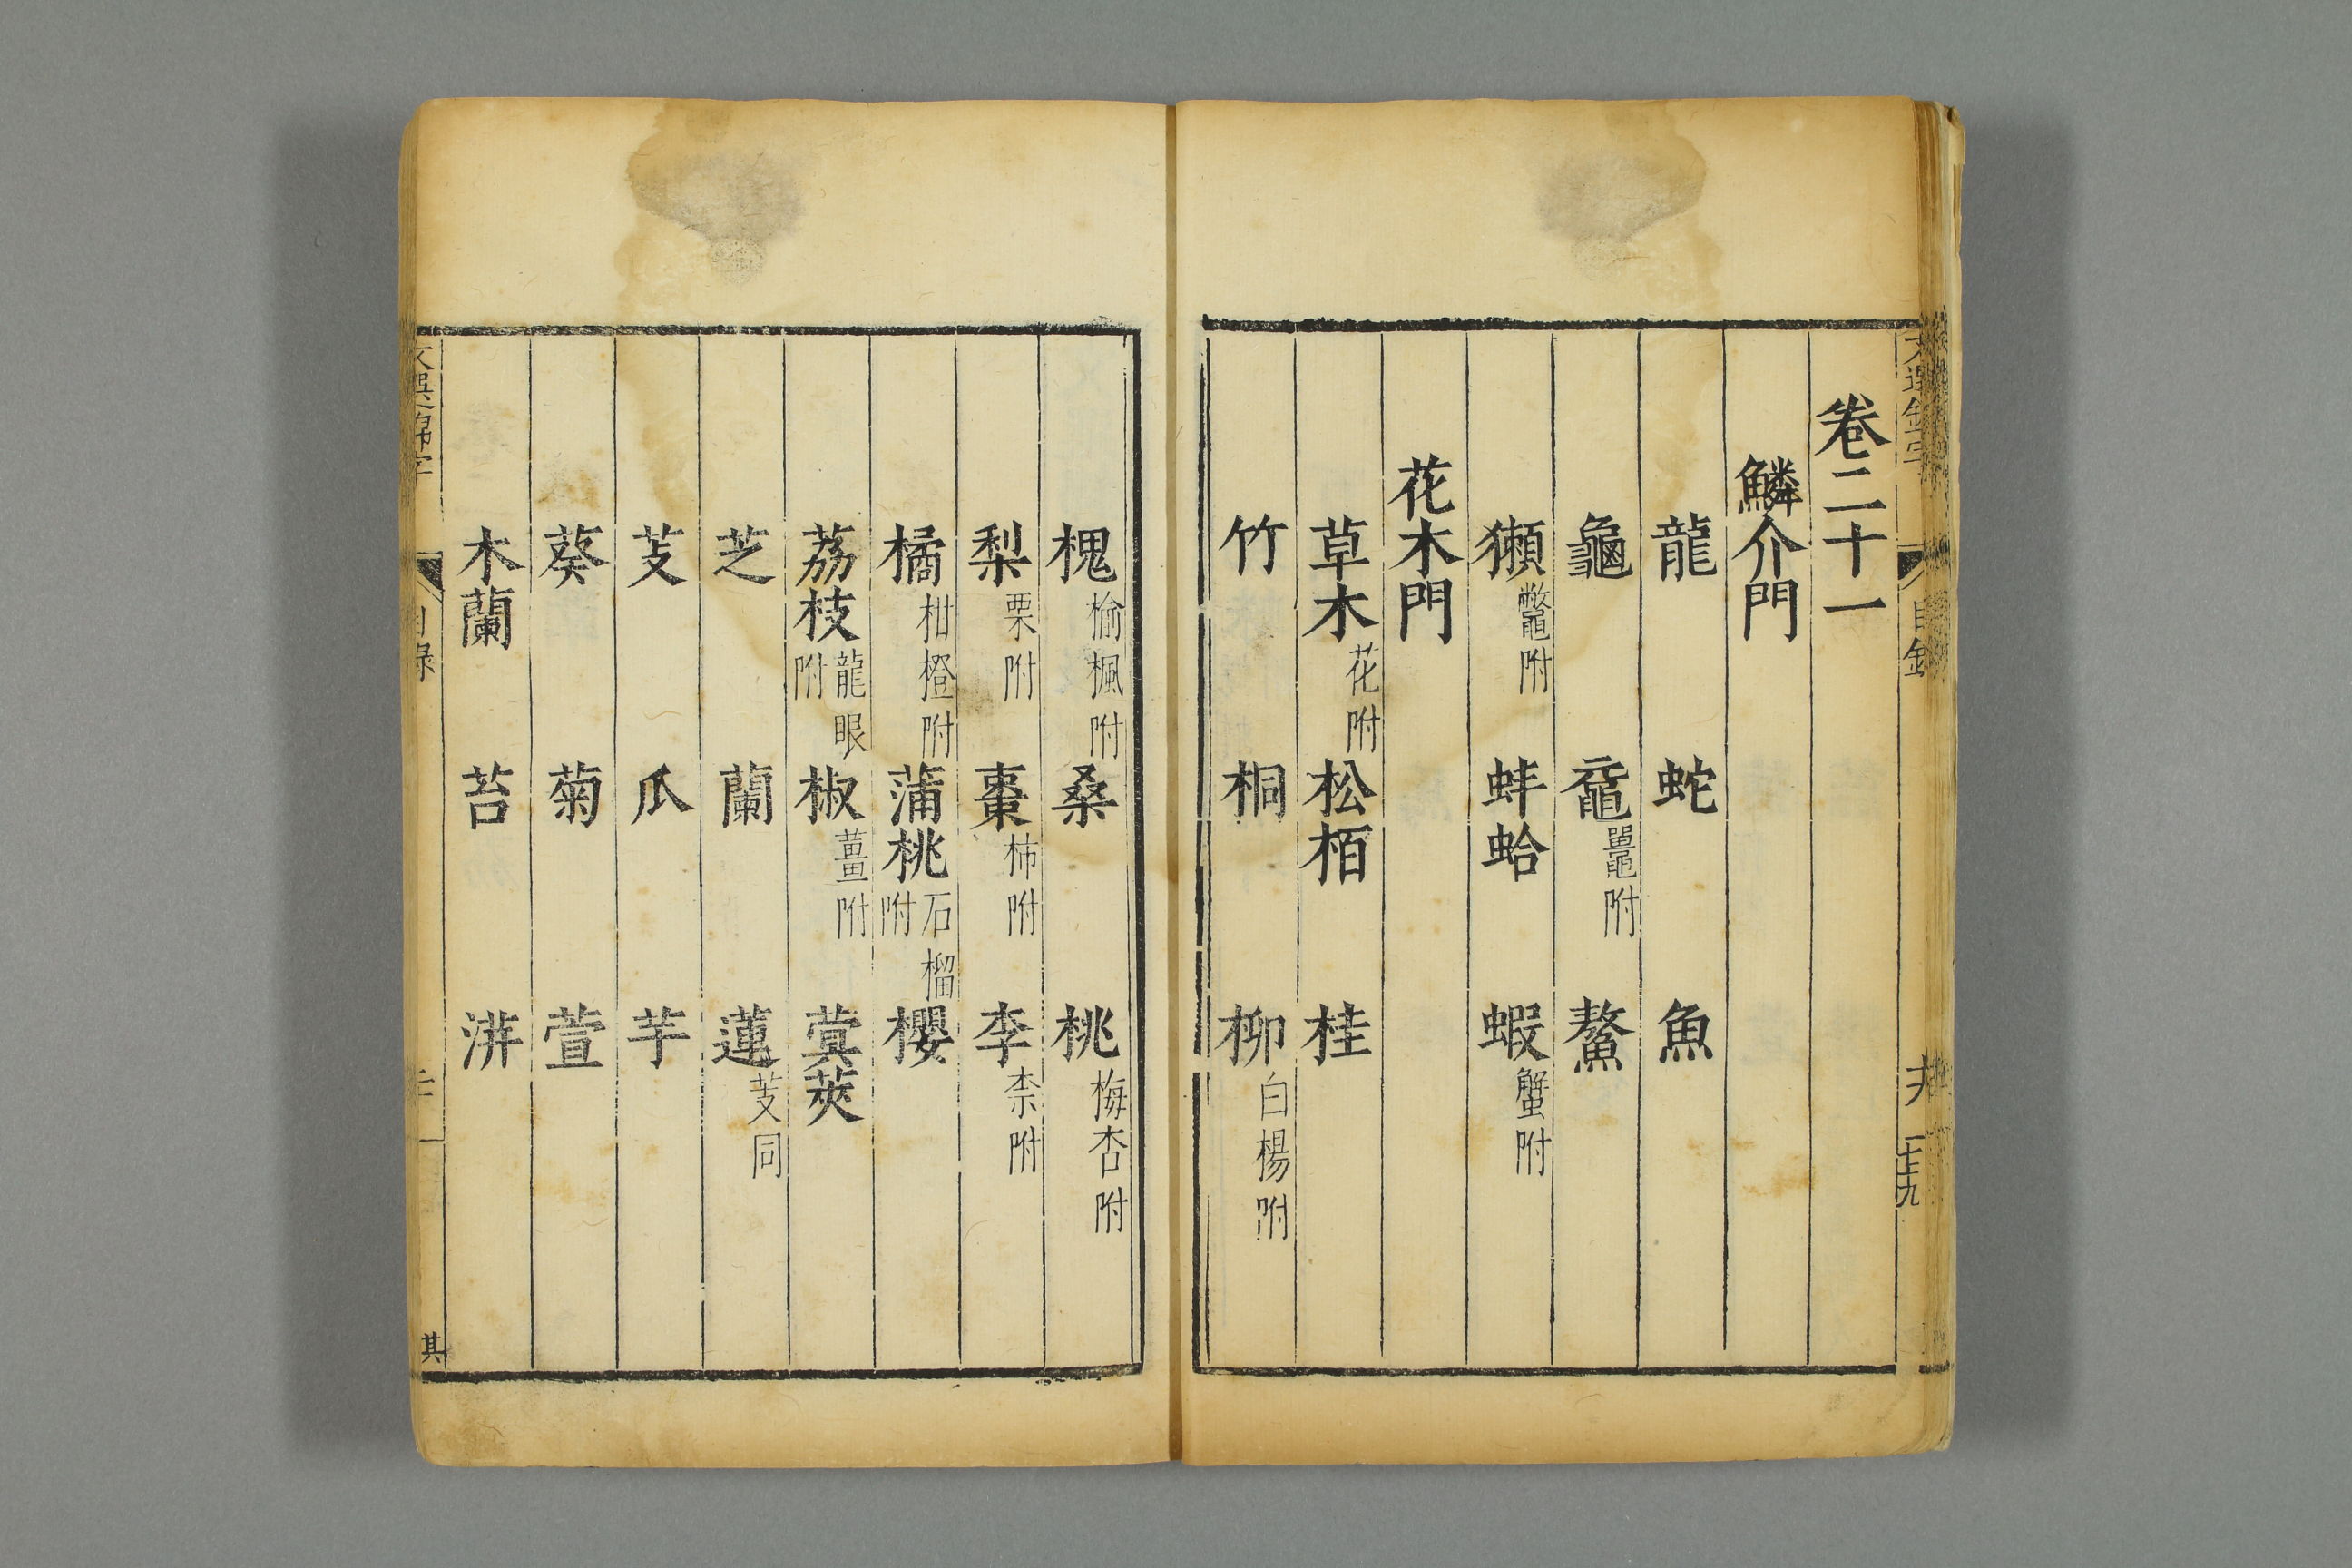 卷二十一
鱗介門
龍 蛇 魚
龜 黿鼉附 鰲
獺鼈附 蚌蛤 蝦蟹附
花木門
草木花附 松栢 桂
竹 桐 柳白楊附
槐榆楓附 桑 桃梅杏附
梨栗附 棗柿附 李柰附
橘柑橙附 蒲桃石榴附 櫻
荔枝龍眼附 椒薑附 蓂莢
芝 蘭 蓮芰同
芰 瓜 芋
葵 菊 萱
木蘭 苔 蓱
目錄
其